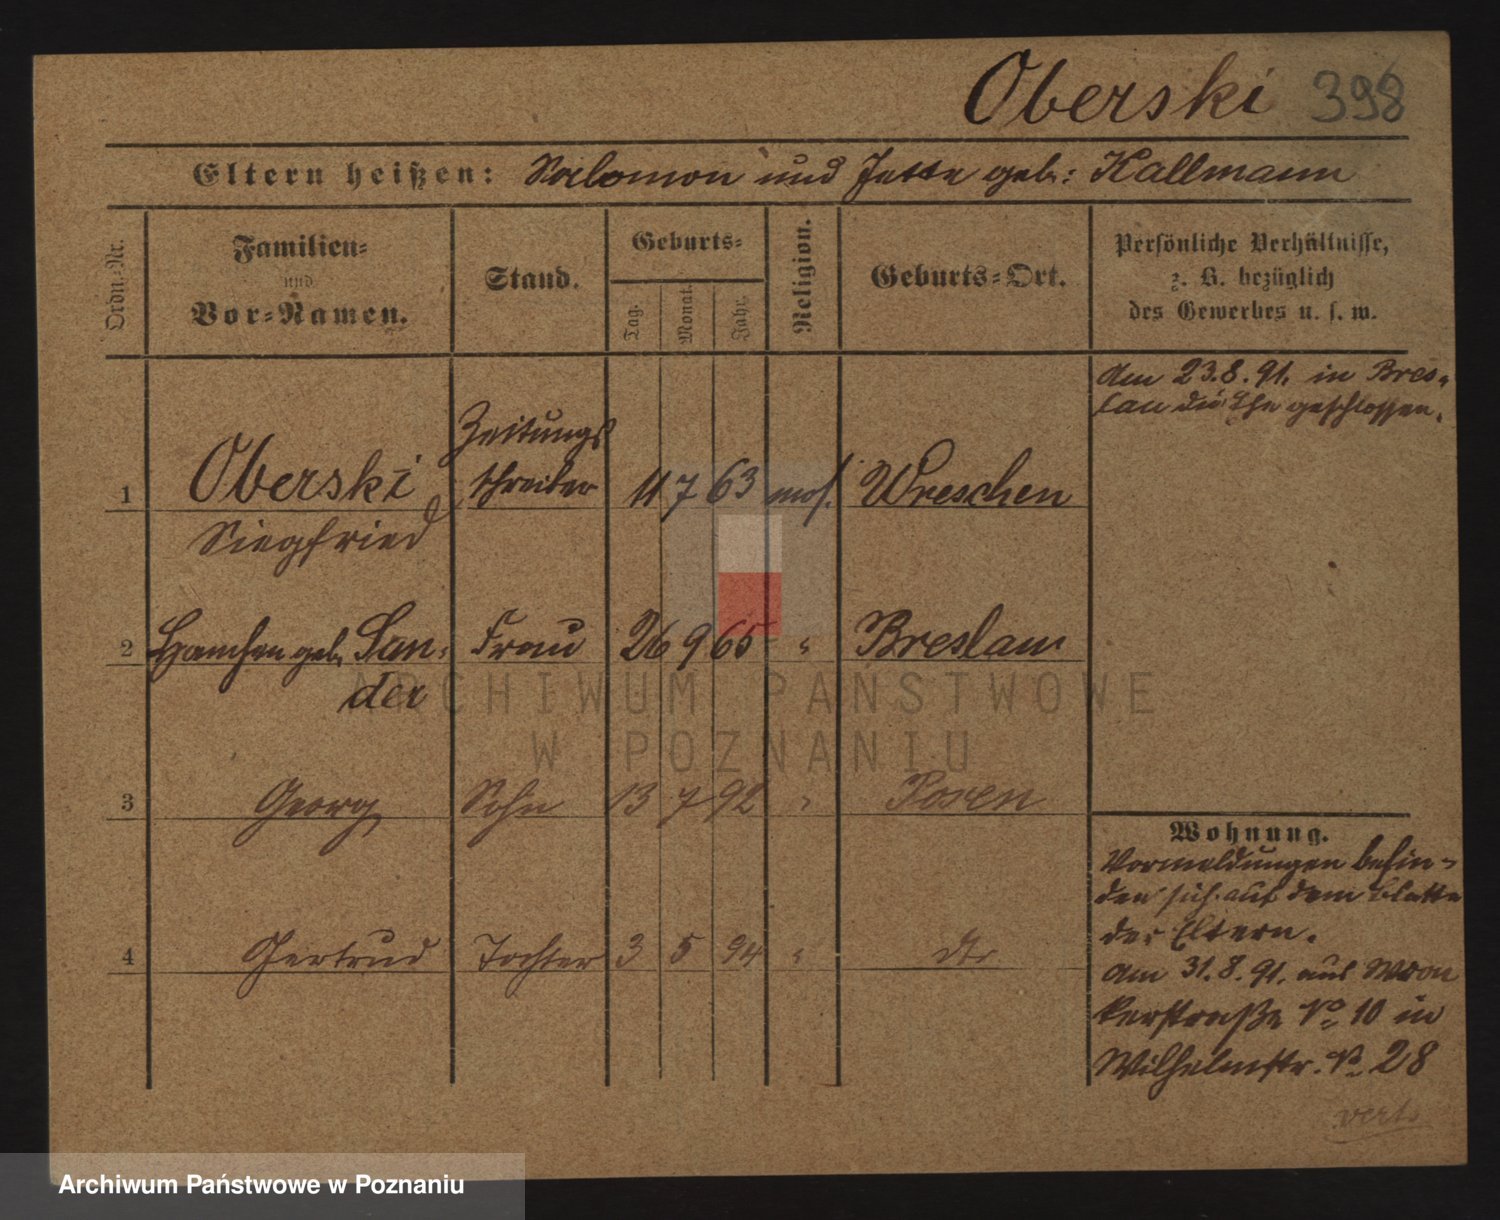 Oberski 398
Eltern heißen: Salomon und Jette geb: Kallmann
Ordn.-Nr.
Familien-
und
Vor-Namen.
Stand.
Geburts-
Tag.
Monat.
Jahr.
Religion.
Geburts-Ort.
Persönliche Verhältnisse,
z. B. bezüglich
des Gewerbes u. s. w.
Am 23.8.91. in Bres-
lau die Ehe geschlossen.
1 Oberski Zeitungs
schreiber 11 7 63 mos. Wreschen
Siegfried
2 Hannchen geb. San- Frau 26 9 65 " Breslau
der
3 Georg Sohn 13 7 92 " Posen
4 Gertrud Tochter 3 5 94 " dto
Wohnung.
Vormeldungen befin-
den sich auf dem Blatte
der Eltern.
Am 31.8.91. aus Wron
kerstraße No 10 in
Wilhelmstr. No 28
vert.
ARCHIWUM PAŃSTWOWE
W POZNANIU
Archiwum Państwowe w Poznaniu